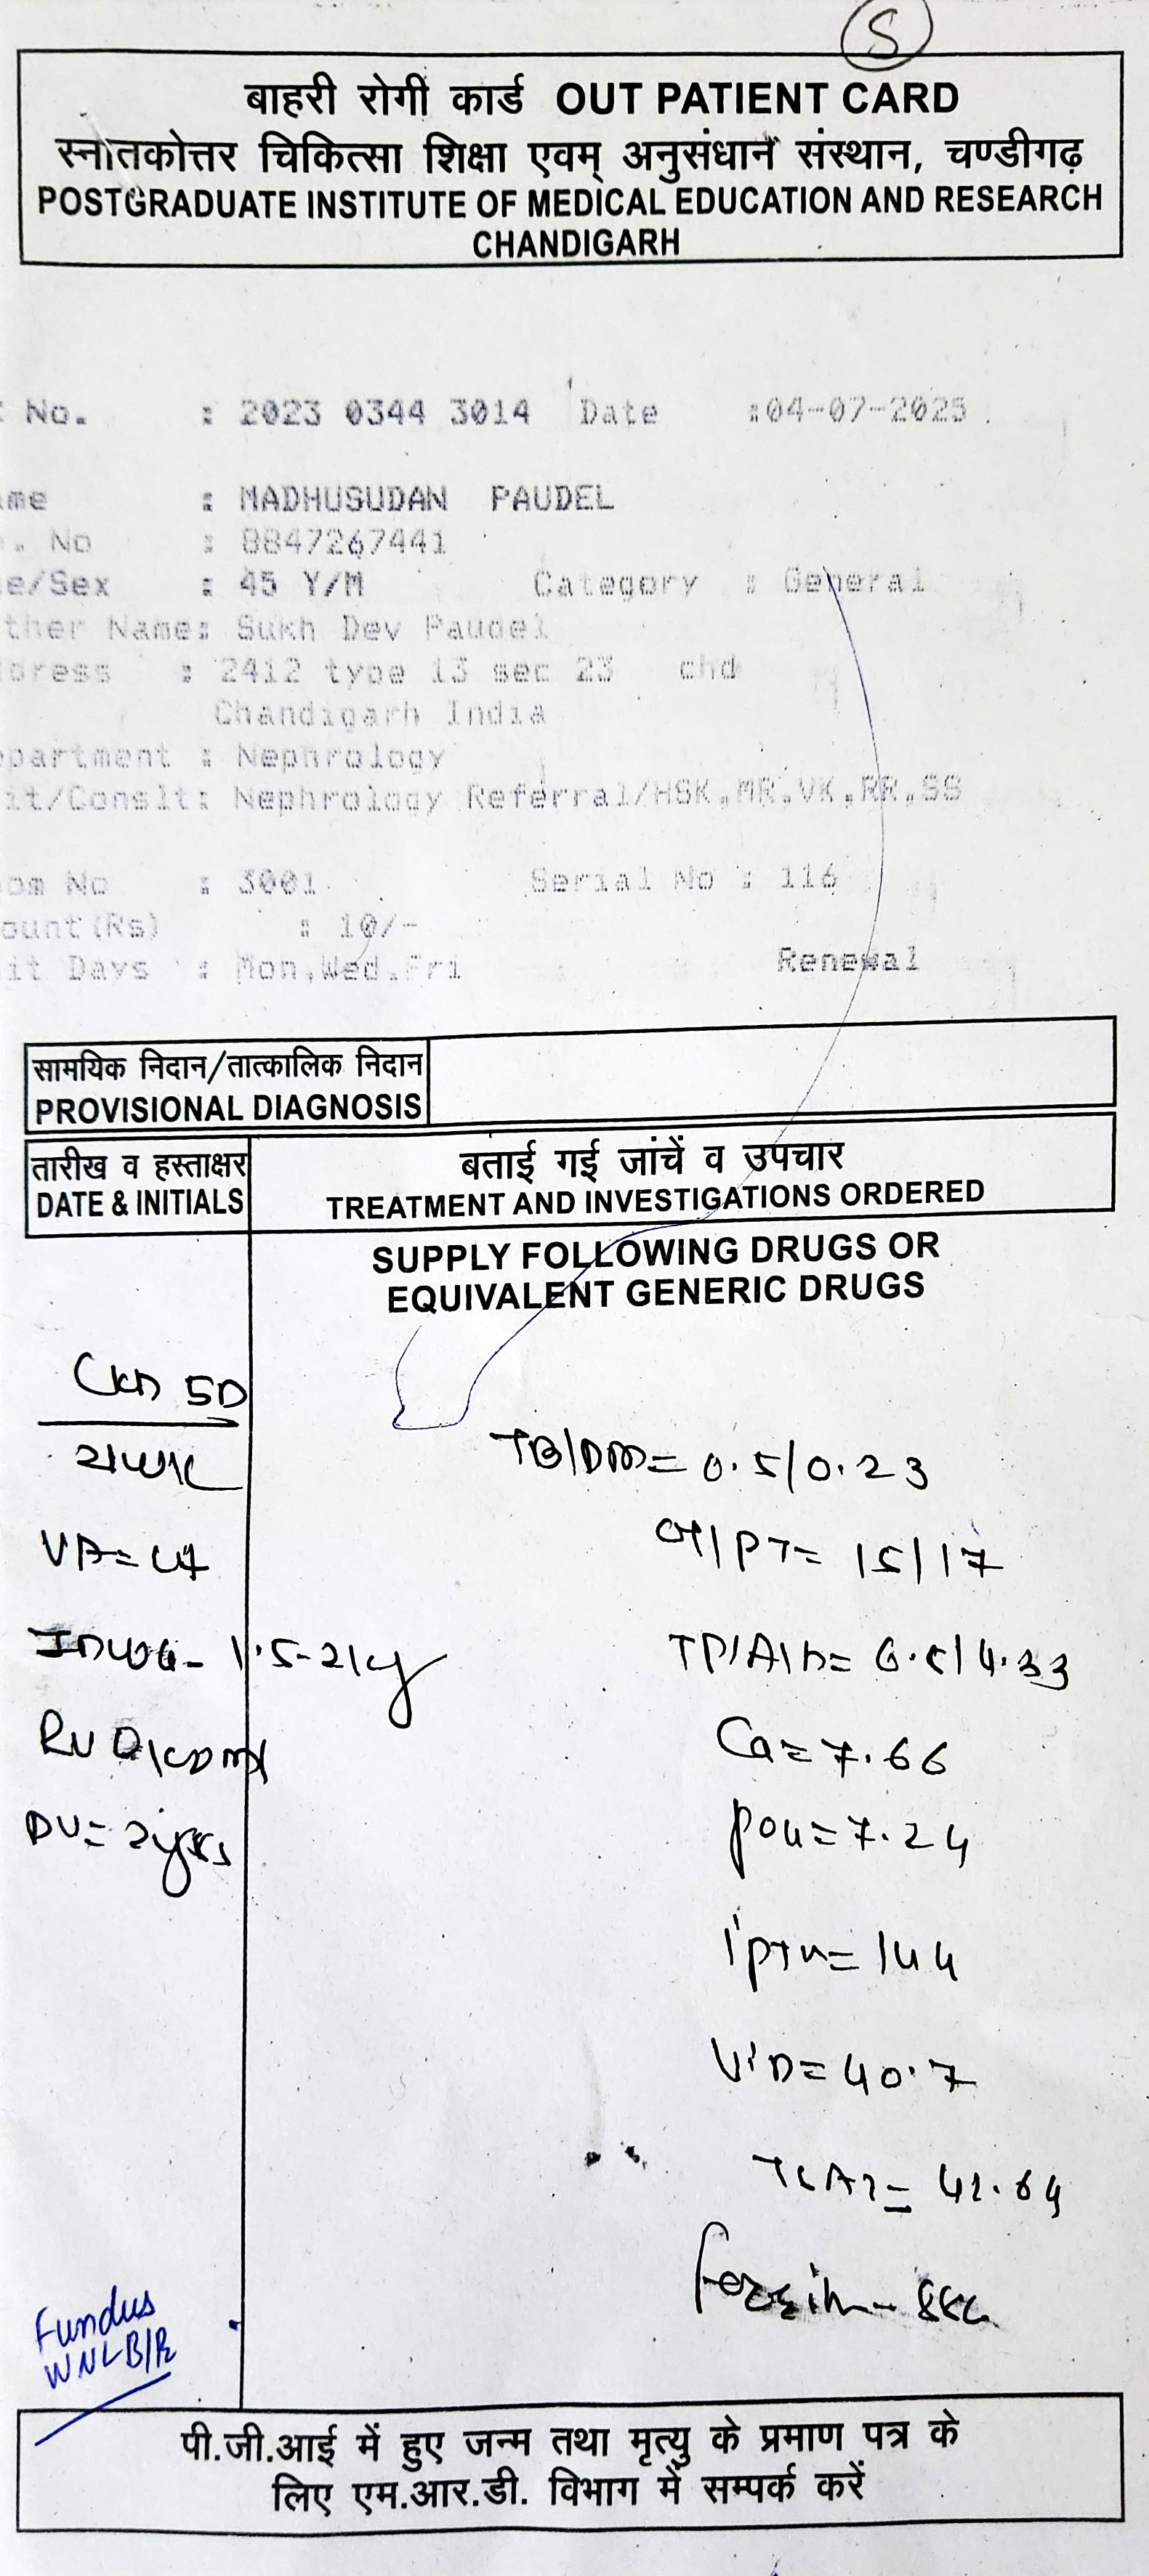 S
बाहरी रोगी कार्ड OUT PATIENT CARD
स्नातकोत्तर चिकित्सा शिक्षा एवम् अनुसंधान संस्थान, चण्डीगढ़
POSTGRADUATE INSTITUTE OF MEDICAL EDUCATION AND RESEARCH
CHANDIGARH
No. : 2023 0344 3014 Date :04-07-2025
me : MADHUSUDAN PAUDEL
. No : 8847267441
e/Sex : 45 Y/M Category : General
ther Name: Sukh Dev Paudel
dress : 2412 type 13 sec 23 chd
Chandigarh India
partment : Nephrology
it/Conslt: Nephrology Referral/HSK,MR,VK,RR,SS
om No : 3001 Serial No : 116
ount(Rs) : 10/-
it Days : Mon,Wed,Fri Renewal
सामयिक निदान/तात्कालिक निदान
PROVISIONAL DIAGNOSIS
तारीख व हस्ताक्षर
DATE & INITIALS
बताई गई जांचें व उपचार
TREATMENT AND INVESTIGATIONS ORDERED
SUPPLY FOLLOWING DRUGS OR
EQUIVALENT GENERIC DRUGS
CKD 5D
2/wk
VA=
IDWG- 1.5-2kg
DV= 2yrs
Fundus
WNL B/L
TB/DB= 0.5/0.23
OT/PT= 15/17
TP/Alb= 6.5/4.33
Ca= 7.66
PO4=7.24
iPTH= 144
Vit D= 40.7
= 42.64
Ferritin-
पी.जी.आई में हुए जन्म तथा मृत्यु के प्रमाण पत्र के
लिए एम.आर.डी. विभाग में सम्पर्क करें